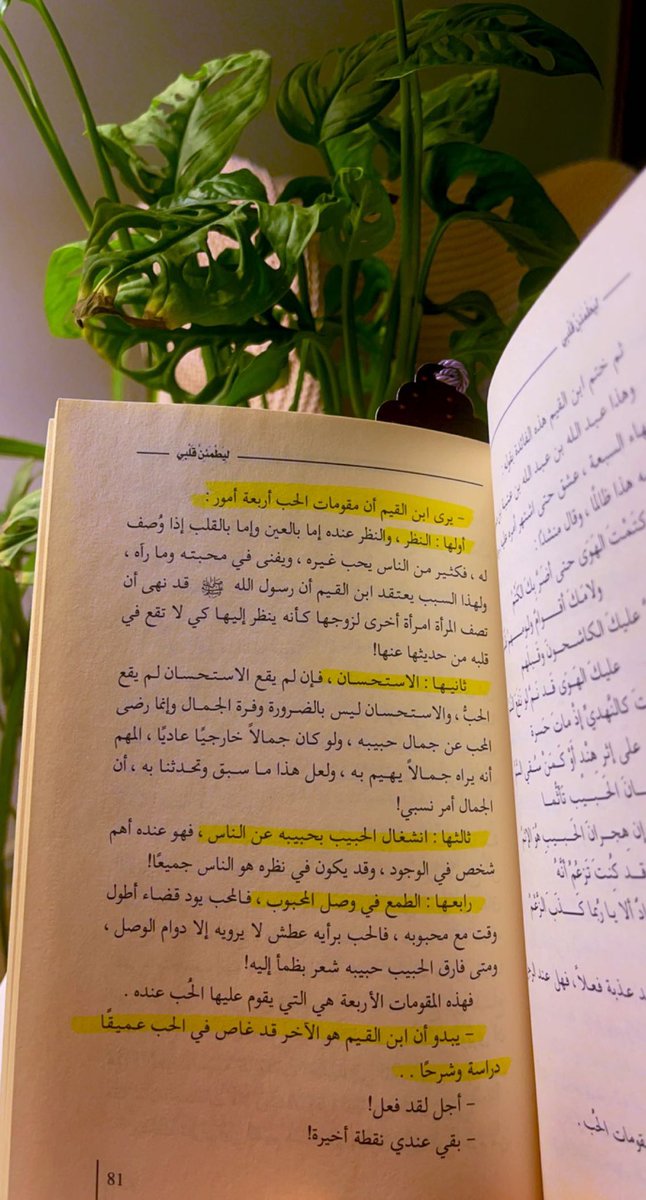 ليَطْمَئنَّ قَلْبي
- يرى ابن القيم أن مقومات الحب أربعة أمور :
أولها : النظر ، والنظر عنده إما بالعين وإما بالقلب إذا وُصف
له ، فكثير من الناس يحب غيره ، ويفنى في محبته وما رآه ،
ولهذا السبب يعتقد ابن القيم أن رسول الله ﷺ قد نهى أن
تصف المرأة امرأة أخرى لزوجها كأنه ينظر إليها كي لا تقع في
قلبه من حديثها عنها!
ثانيها : الاستحسان ، فإن لم يقع الاستحسان لم يقع
الحبُّ ، والاستحسان ليس بالضرورة وفرة الجمال وإنما رضى
المحب عن جمال حبيبه ، ولو كان جمالاً خارجيًا عاديًا ، المهم
أنه يراه جمالاً يهيم به ، ولعل هذا ما سبق وتحدثنا به ، أن
الجمال أمر نسبي!
ثالثها : انشغال الحبيب بحبيبه عن الناس ، فهو عنده أهم
شخص في الوجود ، وقد يكون في نظره هو الناس جميعًا!
رابعها : الطمع في وصل المحبوب ، فالمحب يود قضاء أطول
وقت مع محبوبه ، فالحب برأيه عطش لا يرويه إلا دوام الوصل ،
ومتى فارق الحبيب حبيبه شعر بظمأ إليه!
فهذه المقومات الأربعة هي التي يقوم عليها الحُب عنده .
- يبدو أن ابن القيم هو الآخر قد غاص في الحب عميقًا
دراسة وشرحًا . .
- أجل لقد فعل!
- بقي عندي نقطة أخيرة!
81
ليَطْمَئنَّ قَلْبي
ثم ختم ابن القيم هذه الفائدة بقوله :
وهذا عبد الله بن عبد الله بن عتبة
السبعة ، عشق حتى اشتهر أمره
هذا ظالمًا ، وقال منشدًا :
كتمْتَ الهَوَى حتى أضَرَّ بكَ الكَتْمُ
ولامَكَ أقوامٌ
عليكَ الكاشحونَ وقَبلَهم
عليكَ الهَوَى قد نَمَّ
كالنَّهديِّ إذ مات حَسرةً
على إثرِ هِنْدٍ أوْ كَمَنْ سُقي
الحَبيْب تأثُّمًا
إن هجرانَ الحَبيب هُوَ
قد كُنتَ تَزعُمُ أنَّهُ
ألا يا ربّما كَذَبَ الزَّعْمُ
عذبة فعلاً ، فهل عند
مقومات الحُب .